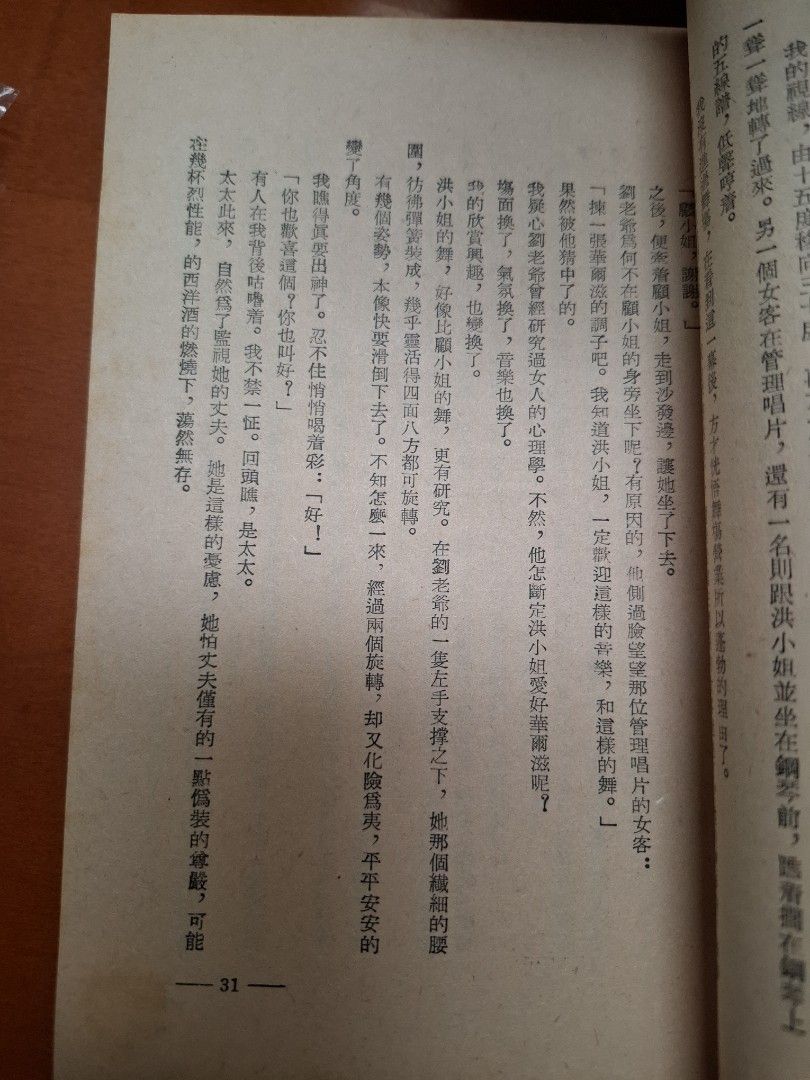 我的視線，由十五度
一聳一聳地轉了過來。另一個女客在管理唱片，還有一名則跟洪小姐並坐在鋼琴前，瞧着擱在鋼琴上
的五線譜，低聲哼着。
「顧小姐，謝謝。」
之後，便牽着顧小姐，走到沙發邊，讓她坐了下去。
劉老爺爲何不在顧小姐的身旁坐下呢？有原因的，他側過臉望望那位管理唱片的女客：
「揀一張華爾滋的調子吧。我知道洪小姐，一定歡迎這樣的音樂，和這樣的舞。」
果然被他猜中了的。
我疑心劉老爺曾經研究過女人的心理學。不然，他怎斷定洪小姐愛好華爾滋呢？
塲面換了，氣氛換了，音樂也換了。
我的欣賞興趣，也變換了。
洪小姐的舞，好像比顧小姐的舞，更有研究。在劉老爺的一隻左手支撐之下，她那個纖細的腰
圍，彷彿彈簧裝成，幾乎靈活得四面八方都可旋轉。
有幾個姿勢，本像快要滑倒下去了。不知怎麽一來，經過兩個旋轉，却又化險爲夷，平平安安的
變了角度。
我瞧得眞要出神了。忍不住悄悄喝着彩：「好！」
「你也歡喜這個？你也叫好？」
有人在我背後咕嚕着。我不禁一怔。回頭瞧，是太太。
太太此來，自然爲了監視她的丈夫。她是這樣的憂慮，她怕丈夫僅有的一點僞裝的尊嚴，可能
在幾杯烈性能，的西洋酒的燃燒下，蕩然無存。
— 31 —